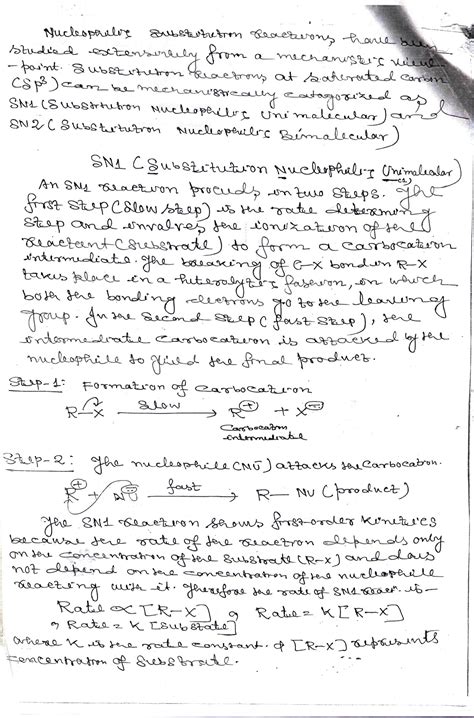 Nucleophilic Substitution reactions, have been
studied extensively from a mechanistic view
-point. Substitution reactions at saturated carbon
(Sp³) can be mechanistically catagorized as
SN1 (Substitution Nucleophilic Unimolecular) and
SN2 (Substitution Nucleophilic Bimolecular)
SN1 (Substitution Nucleophilic Unimolecular)
An SN1 reaction proceeds, in two steps. The
first step (slow step) is the rate determining
step and involves the ionization of the
reactant (substrate) to form a carbocation
intermediate. The breaking of C-X bond in R-X
takes place in a heterolytic fashion, in which
both the bonding electrons go to the leaving
group. In the second step (fast step), the
intermediate carbocation is attacked by the
nucleophile to yield the final product.
Step-1: Formation of carbocation
R-X slow → R⊕ + X⊖
Carbocation
intermediate
Step-2: The nucleophile (Nu) attacks the carbocation.
R⊕ + Nu⊖ fast → R- NU (product)
The SN1 reaction shows first order kinetics
because the rate of the reaction depends only
on the concentration of the substrate (R-X) and does
not depend on the concentration of the nucleophile
reacting with it. Therefore the rate of SN1 reac. is-
Rate ∝ [R-X] , Rate = K [R-X]
, Rate = K [Substate]
where K is the rate constant. & [R-X] represents
concentration of substrate.